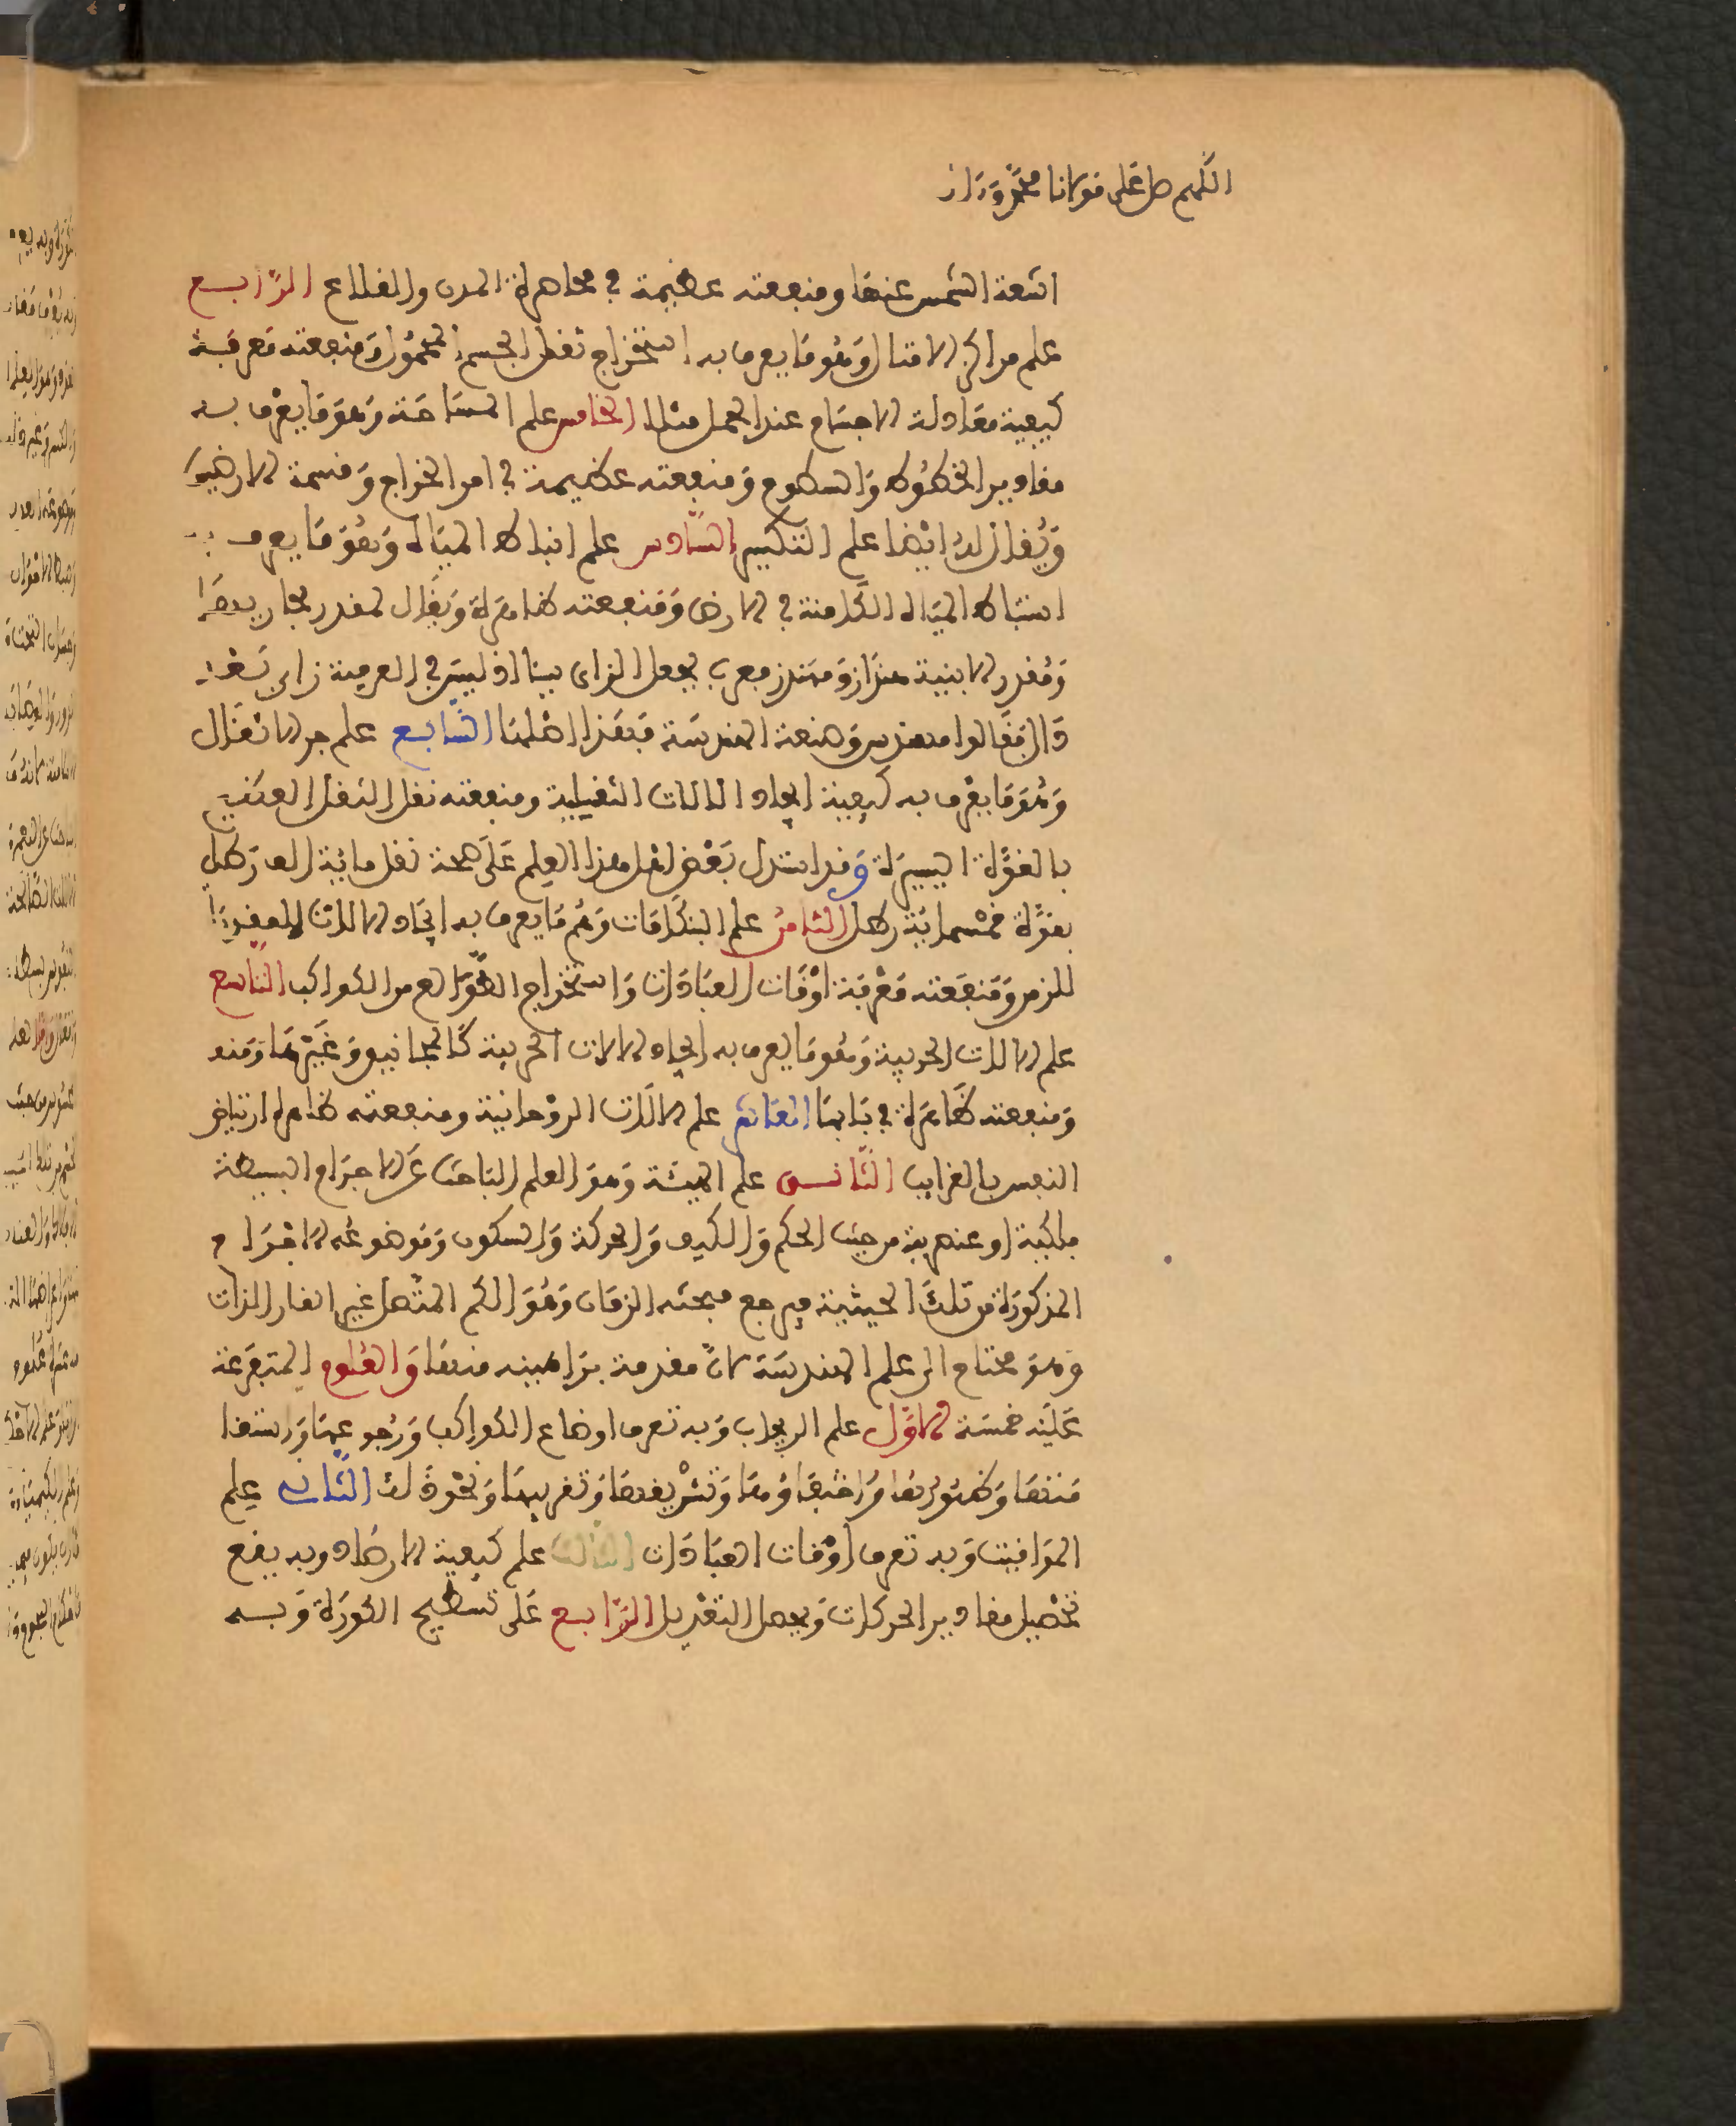 اللهم صل على مولانا محمد وءاله
اشعة الشمس عنها ومنفعته عظيمة في محاصرة المدن والقلاع الرابع
علم مراكز الاثقال وهو ما يعرف به استخراج ثقل الجسم المحمول ومنفعته معرفة
كيفية معادلة الاجسام عند الحمل مثلا الخامس علم المساحة وهو ما يعرف به
مقادير الخطوط والسطوح ومنفعته عظيمة في امر الخراج وقسمة الارضين
ويقال له ايضا علم التكسير السادس علم انباط المياه وهو ما يعرف به
استنباط المياه الكامنة في الارض ومنفعته ظاهرة ويقال لمقدر مجاريها
ومقدر الابنية هنداز ومهندز معرب بجعل الزاى سينا اذ ليس في العربية زاى بعد
دال فقالوا مهندس وصنعة الهندسة فهذا اصلها السابع علم جر الاثقال
وهو ما يعرف به كيفية ايجاد الالات الثقيلة ومنفعته نقل الثقل العظيم
بالقوة اليسيرة وقد استدل بعض اهل هذا العلم على صحة نقل مائة الف رطل
بقوة خمسمائة رطل الثامن علم البنكامات وهو ما يعرف به ايجاد الالات المقدرة
للزمن ومنفعته معرفة اوقات العبادات واستخراج الطوالع من الكواكب التاسع
علم الالات الحربية وهو ما يعرف به ايجاد الالات الحربية كالمجانيق وغيرها ومنه
ومنفعته ظاهرة في بابها العاشر علم الالات الروحانية ومنفعته ظاهرة ارتياض
النفس بالغرايب الثانى علم الهيئة وهو العلم الباحث عن الاجرام البسيطة
فلكية او عنصرية من حيث الحكم والكيف والحركة والسكون وموضوعه الاجرام
المذكورة من تلك الحيثية فيرجع مبحثه الزمان وهو الكم المتصل غير القار الذات
وهو محتاج الى علم الهندسة لان مقدمة براهينه منها والعلوم المتفرعة
عليه خمسة الاول علم الزيجات وبه تعرف اوضاع الكواكب ورجوعها واستقا
متها وظهورها واختفاؤها وتشريقها وتغريبها ونحو ذلك الثانى علم
المواقيت وبه تعرف اوقات العبادات الثالث علم كيفية الارصاد وبه يقع
تحصيل مقادير الحركات ويحصل التعديل الرابع على تسطيح الكورة وبه